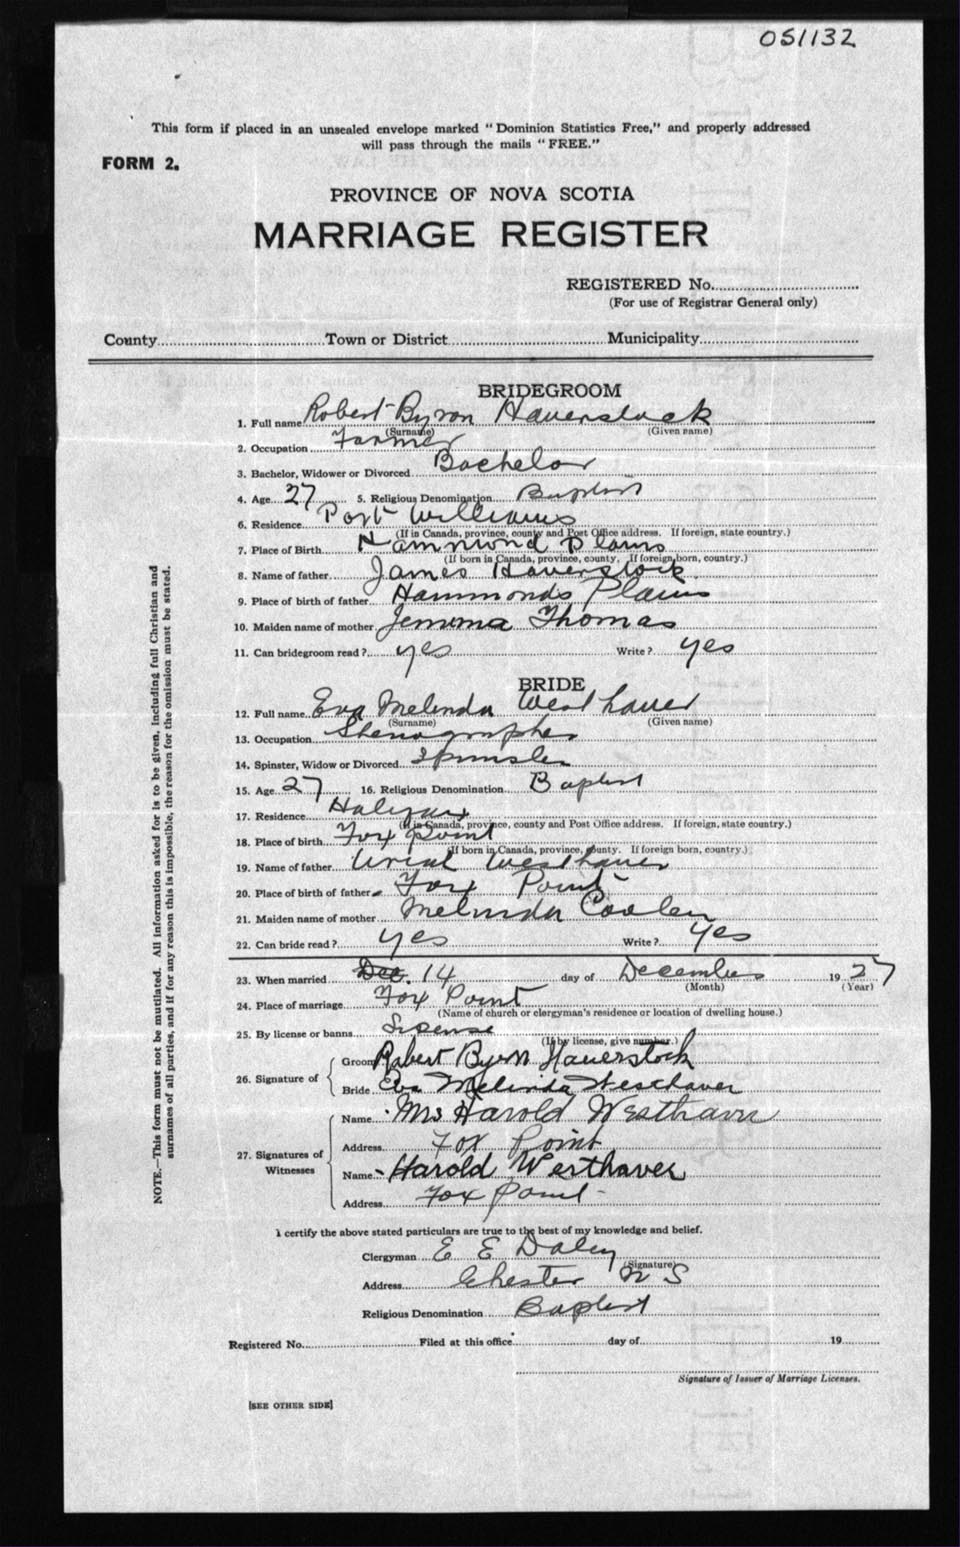 051132
This form if placed in an unsealed envelope marked "Dominion Statistics Free," and properly addressed
will pass through the mails "FREE."
FORM 2.
PROVINCE OF NOVA SCOTIA
MARRIAGE REGISTER
REGISTERED No.
(For use of Registrar General only)
County Town or District Municipality
BRIDEGROOM
1. Full name Robert Byron Haverstock
(Surname) (Given name)
2. Occupation Farmer
3. Bachelor, Widower or Divorced Bachelor
4. Age 27 5. Religious Denomination Baptist
6. Residence Port Williams
(If in Canada, province, county and Post Office address. If foreign, state country.)
7. Place of Birth Hammond Plains
(If born in Canada, province, county. If foreign born, country.)
8. Name of father James Haverstock
9. Place of birth of father Hammonds Plains
10. Maiden name of mother Jemima Thomas
11. Can bridegroom read? yes Write? yes
BRIDE
12. Full name Eva Melinda Westhaver
(Surname) (Given name)
13. Occupation Stenographer
14. Spinster, Widow or Divorced Spinster
15. Age 27 16. Religious Denomination Baptist
17. Residence Halifax
(If in Canada, province, county and Post Office address. If foreign, state country.)
18. Place of birth Fox Point
(If born in Canada, province, county. If foreign born, country.)
19. Name of father Urial Westhaver
20. Place of birth of father Fox Point
21. Maiden name of mother Melinda Coolen
22. Can bride read? yes Write? yes
23. When married Dec. 14 day of December 1927
(Month) (Year)
24. Place of marriage Fox Point
(Name of church or clergyman's residence or location of dwelling house.)
25. By license or banns Lisense
(If by license, give number.)
26. Signature of
Groom Robert Byron Haverstock
Bride Eva Melinda Westhaver
27. Signatures of Witnesses
Name Mrs Harold Westhaver
Address Fox Point
Name Harold Westhaver
Address Fox Point
I certify the above stated particulars are true to the best of my knowledge and belief.
Clergyman E E Daley
(Signature)
Address Chester N S
Religious Denomination Baptist
Registered No. Filed at this office day of 19
Signature of Issuer of Marriage Licenses.
[SEE OTHER SIDE]
NOTE.—This form must not be mutilated. All information asked for is to be given, including full Christian and
surnames of all parties, and if for any reason this is impossible, the reason for the omission must be stated.